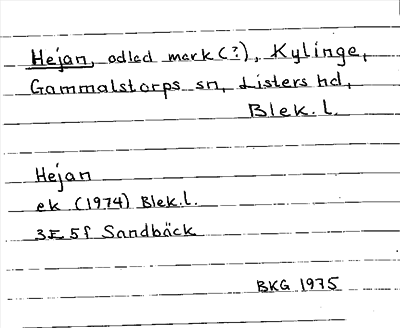 Hejan, odlad mark (?), Kylinge,
Gammalstorps sn, Listers hd,
Blek. l.
Hejan
ek (1974) Blek. l.
3E 5f Sandbäck
BKG 1975